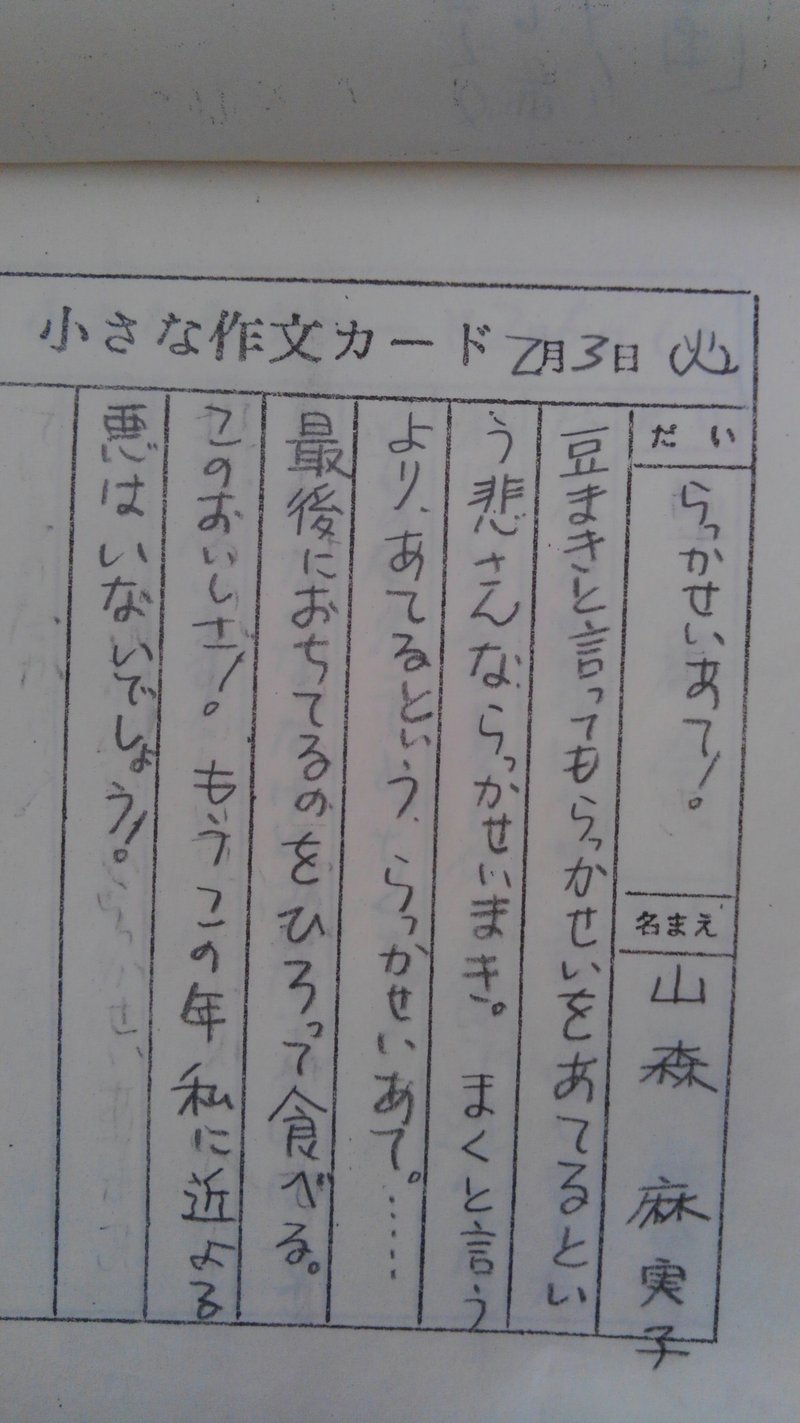 小さな作文カード 2月3日(火)
だい らっかせいあて!。
名まえ 山森 麻実子
豆まきと言ってもらっかせいをあてるとい
う悲さんならっかせいまき。 まくと言う
より、あてるという、らっかせいあて。……
最後におちてるのをひろって食べる。
このおいしさ!。 もうこの年私に近よる
悪はいないでしょう!。